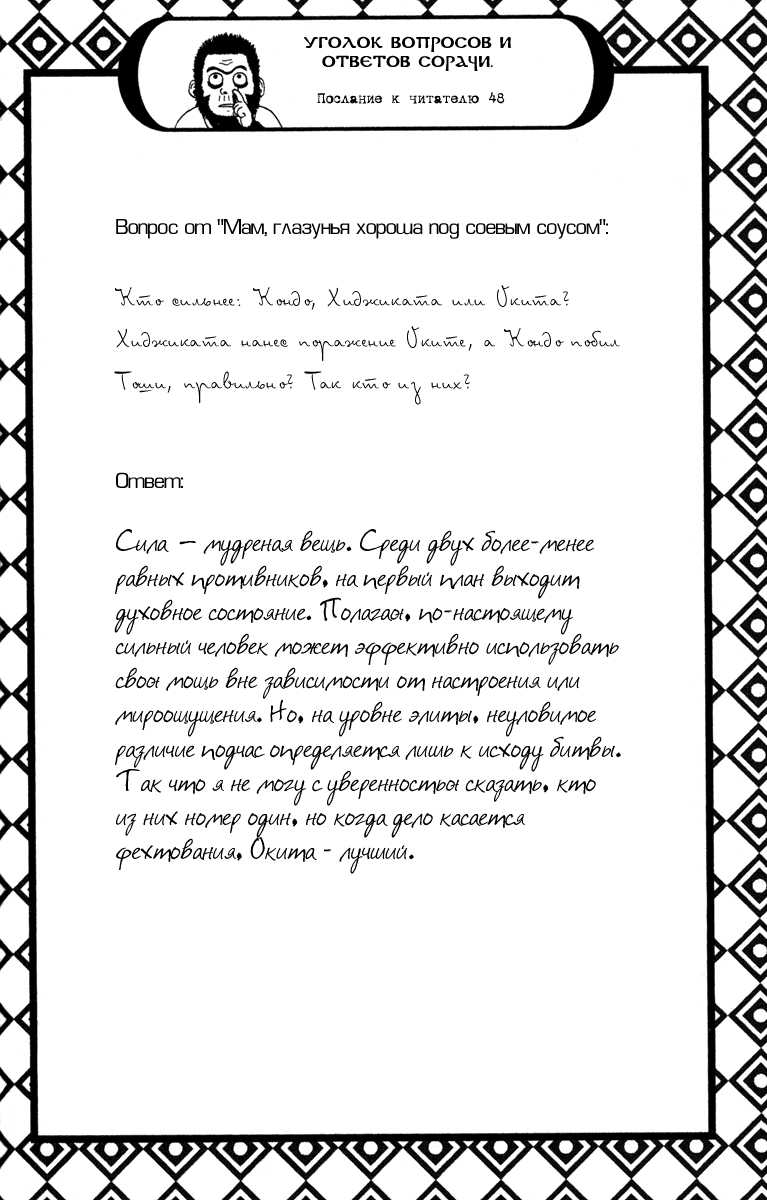 Уголок вопросов и
ответов Сорачи.
Послание к читателю 48
Вопрос от "Мам, глазунья хороша под соевым соусом":
Кто сильнее: Кондо, Хиджиката или Окита?
Хиджиката нанес поражение Оките, а Кондо побил
Тоши, правильно? Так кто из них?
Ответ:
Сила — мудреная вещь. Среди двух более-менее
равных противников, на первый план выходит
духовное состояние. Полагаю, по-настоящему
сильный человек может эффективно использовать
свою мощь вне зависимости от настроения или
мироощущения. Но, на уровне элиты, неуловимое
различие подчас определяется лишь к исходу битвы.
Так что я не могу с уверенностью сказать, кто
из них номер один, но когда дело касается
фехтования, Окита - лучший.